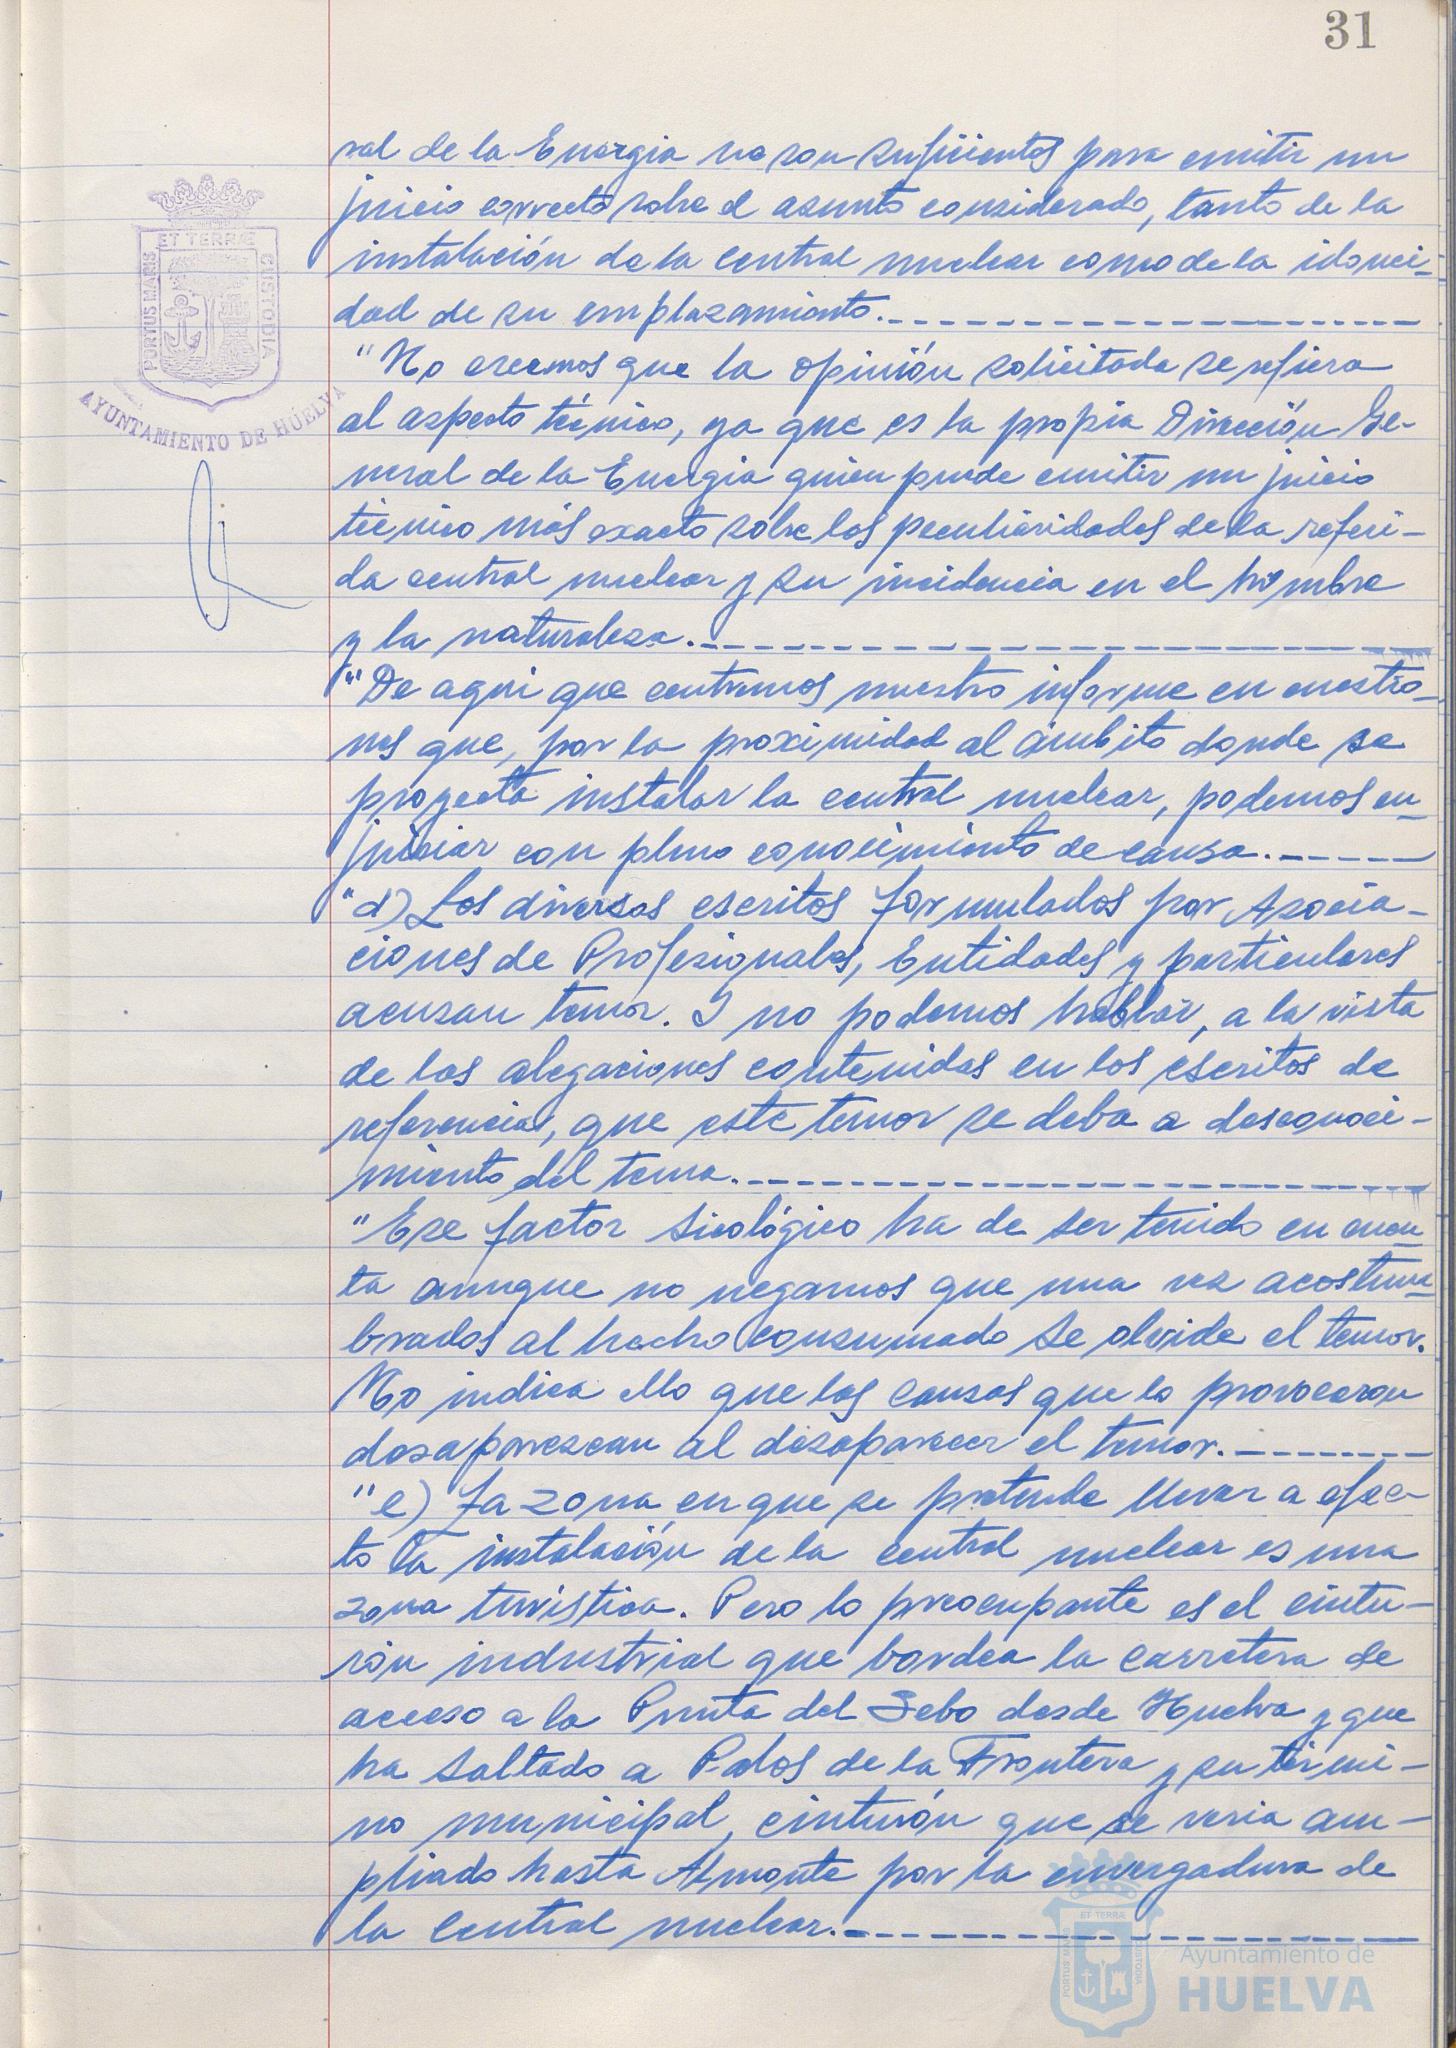 31
ral de la Energia no son suficientes para emitir un
juicio correcto sobre el asunto considerado, tanto de la
instalación de la central nuclear como de la idonei-
dad de su emplazamiento.
"No creemos que la opinión solicitada se refiera
al aspecto técnico, ya que es la propia Dirección Ge-
neral de la Energia quien puede emitir un juicio
técnico más exacto sobre las peculiaridades de la referi-
da central nuclear y su incidencia en el hombre
y la naturaleza.
"De aqui que centremos nuestro informe en cuestio-
nes que, por la proximidad al ámbito donde se
proyecta instalar la central nuclear, podemos en-
juiciar con pleno conocimiento de causa.
"d) Los diversos escritos formulados por Asocia-
ciones de Profesionales, Entidades y particulares
acusan temor. Y no podemos hablar, a la vista
de las alegaciones contenidas en los escritos de
referencia, que este temor se deba a desconoci-
miento del tema.
"Ese factor sicológico ha de ser tenido en cuen-
ta aunque no negamos que una vez acostum-
brados al hecho consumado se olvide el temor.
No indica ello que las causas que lo provocaron
desaparezcan al desaparecer el temor.
"e) La zona en que se pretende llevar a efec-
to la instalación de la central nuclear es una
zona turística. Pero lo preocupante es el cintu-
rón industrial que bordea la carretera de
acceso a la Punta del Sebo desde Huelva y que
ha saltado a Palos de la Frontera y su térmi-
no municipal, cinturón que se veria am-
pliado hasta Almonte por la envergadura de
la central nuclear.
PORTUS MARIS ET TERRÆ CUSTODIA
AYUNTAMIENTO DE HUELVA
PORTUS MARIS ET TERRÆ CUSTODIA
Ayuntamiento de
HUELVA